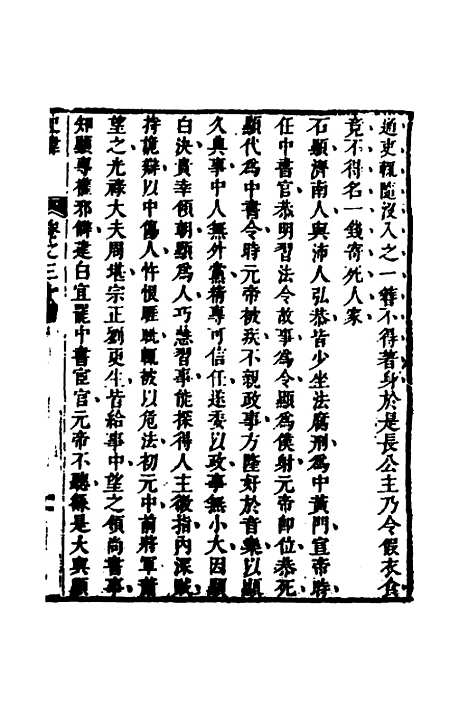 通吏輒隨沒入之一簪不得著身於是長公主乃令假衣食
竟不得名一錢寄死人家
石顯濟南人與沛人弘恭皆少坐法腐刑爲中黃門宣帝時
任中書官恭明習法令故事爲令顯爲僕射元帝即位恭死
顯代爲中書令時元帝被疾不親政事方隆好於音樂以顯
久典事中人無外黨精專可信任遂委以政事無小大因顯
白決貴幸傾朝顯爲人巧慧習事能探得人主微指內深賊
持詭辯以中傷人忤恨睚眦輒被以危法初元中前將軍蕭
望之光祿大夫周堪宗正劉更生皆給事中望之領尚書事
知顯專權邪辟建白宜罷中書宦官元帝不聽繇是大與顯
卷之三十